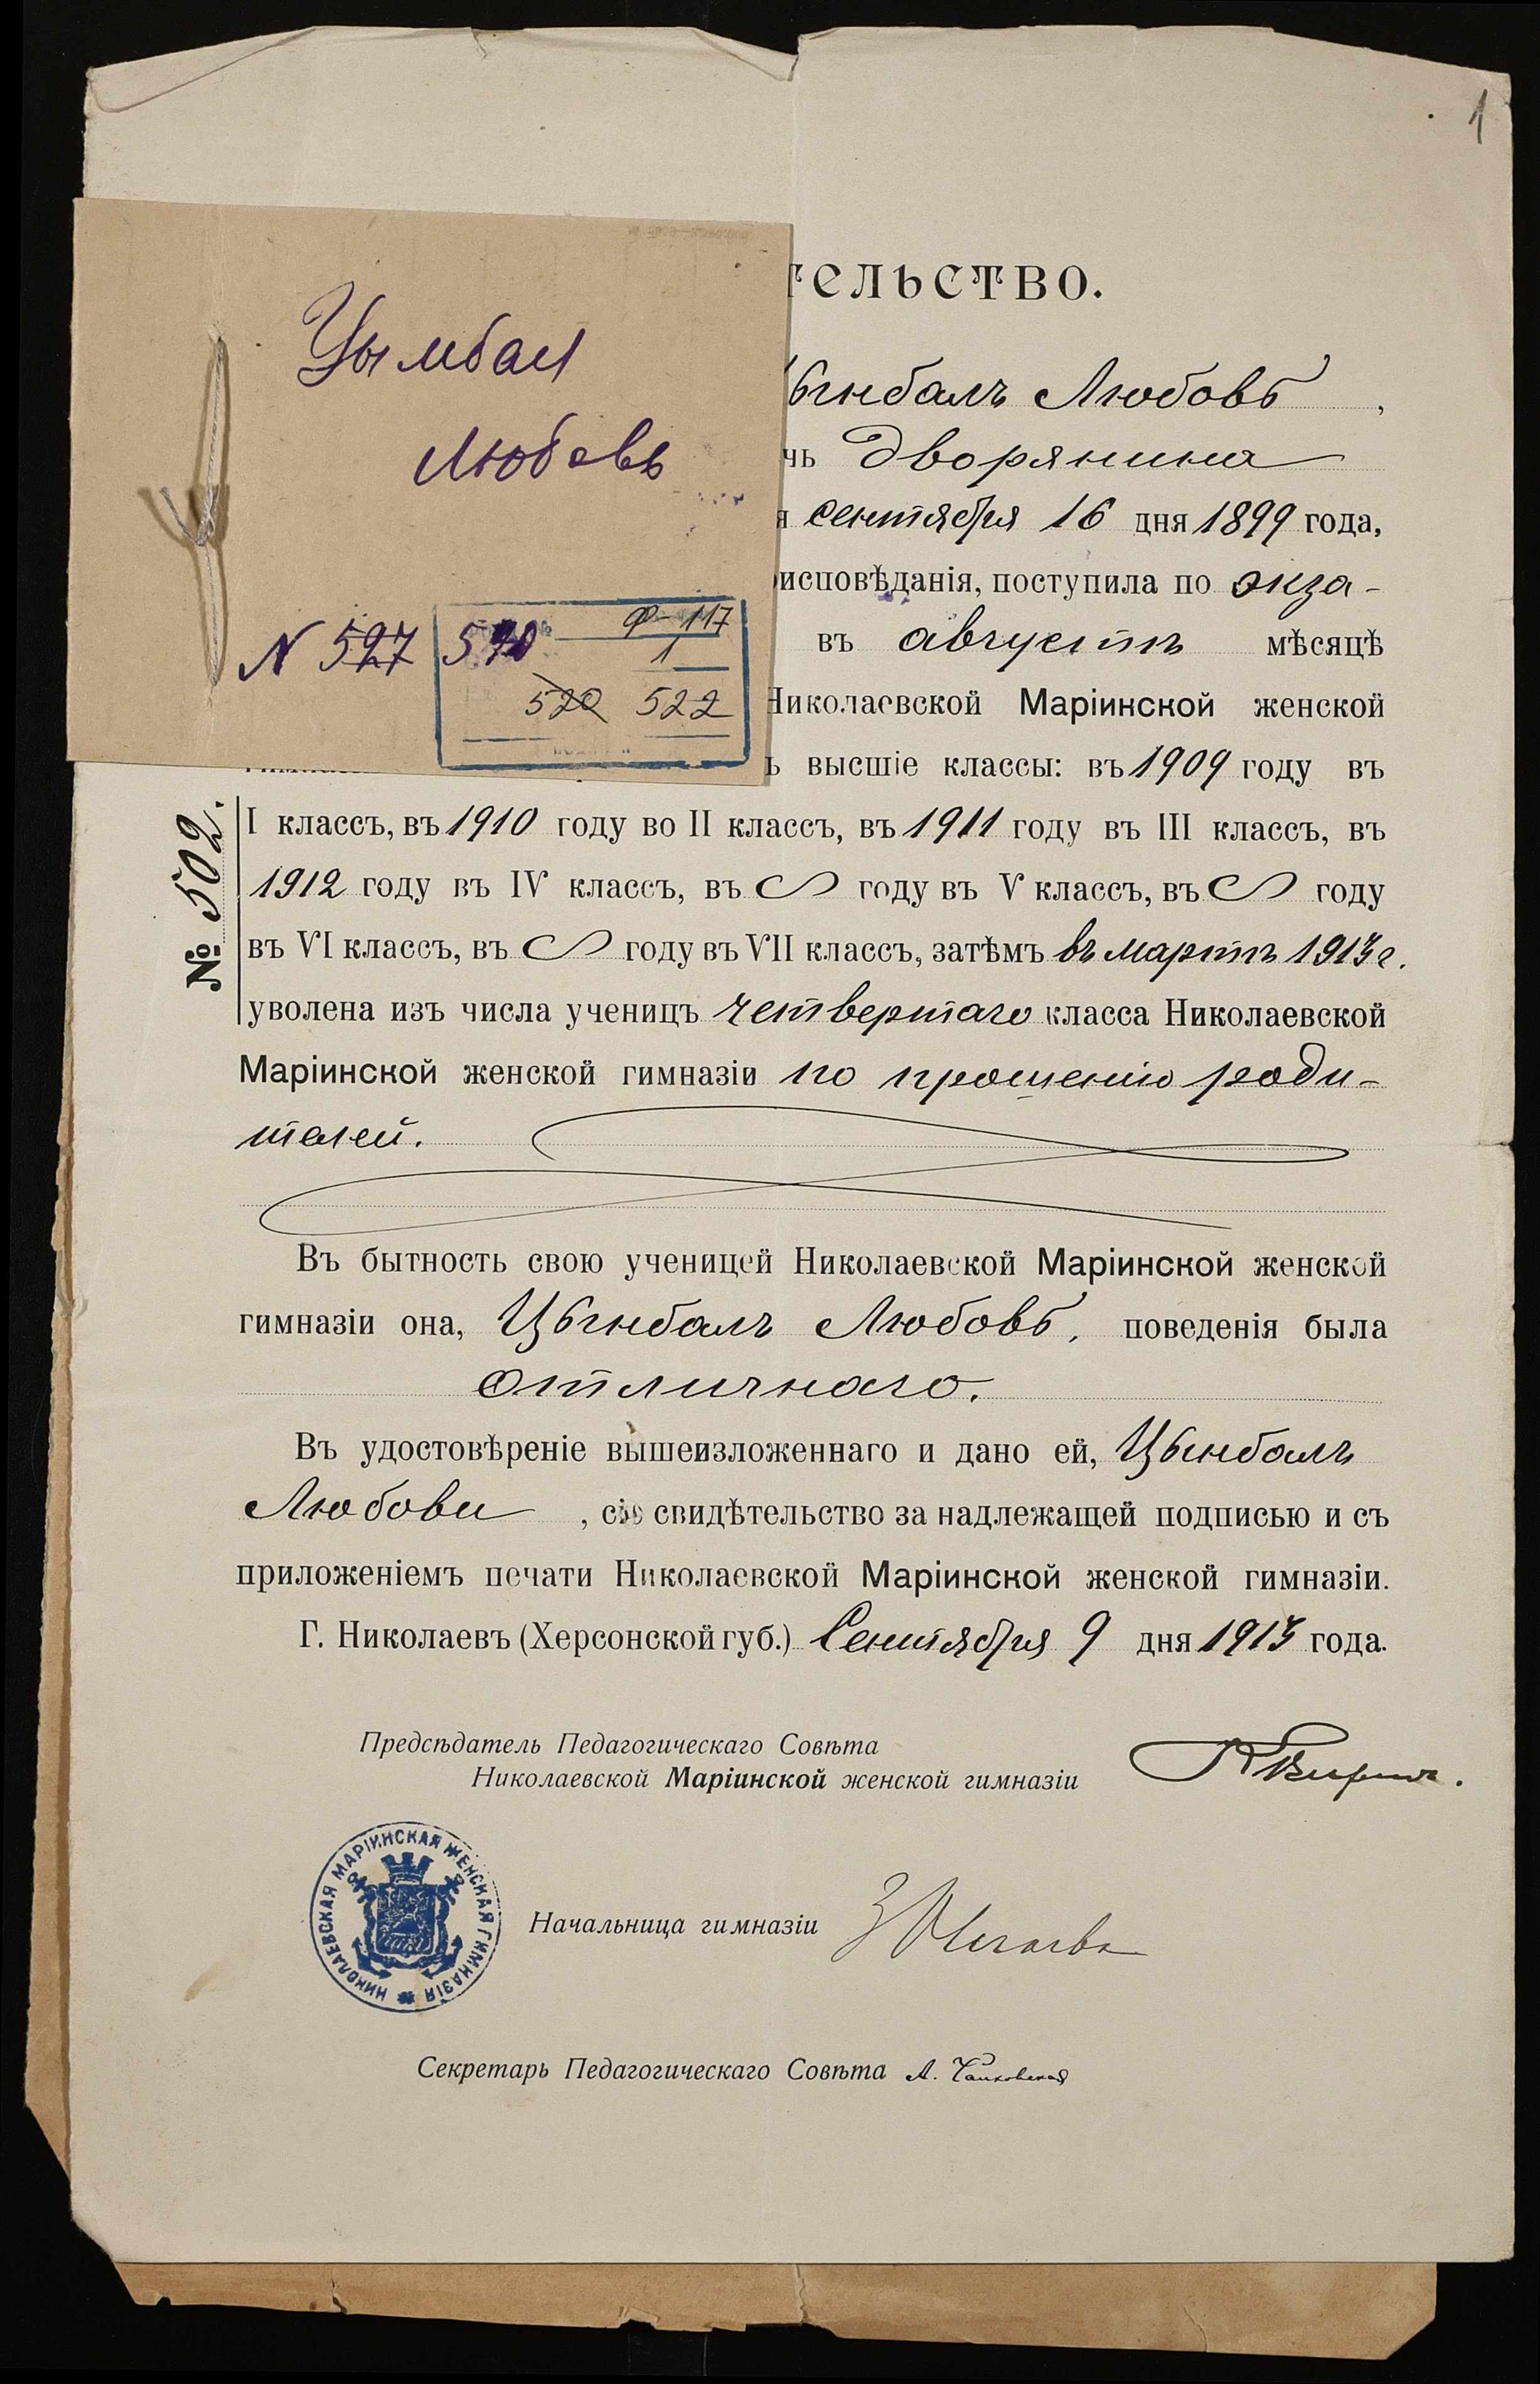 1
Цымбал
Любовь
N 527
Ф-117
1
520 522
тельство.
ынбалъ Любовь ,
чь дворянина
я сентября 16 дня 1899 года,
исповѣданія, поступила по экза-
въ августѣ мѣсяцѣ
Николаевской Маріинской женской
ъ высшіе классы: въ 1909 году въ
I классъ, въ 1910 году во II классъ, въ 1911 году въ III классъ, въ
1912 году въ IV классъ, въ году въ V классъ, въ году
въ VI классъ, въ году въ VII классъ, затѣмъ въ мартѣ 1913 г.
уволена изъ числа ученицъ четвертаго класса Николаевской
Маріинской женской гимназіи по прошенію роди-
телей.
№ 502.
Въ бытность свою ученицей Николаевской Маріинской женской
гимназіи она, Цынбалъ Любовь, поведенія была
отличнаго.
Въ удостовѣреніе вышеизложеннаго и дано ей, Цынбалъ
Любови , сіе свидѣтельство за надлежащей подписью и съ
приложеніемъ печати Николаевской Маріинской женской гимназіи.
Г. Николаевъ (Херсонской губ.) Сентября 9 дня 1913 года.
Предсѣдатель Педагогическаго Совѣта
Николаевской Маріинской женской гимназіи
НИКОЛАЕВСКАЯ МАРІИНСКАЯ ЖЕНСКАЯ ГИМНАЗІЯ
Начальница гимназіи
Секретарь Педагогическаго Совѣта А.